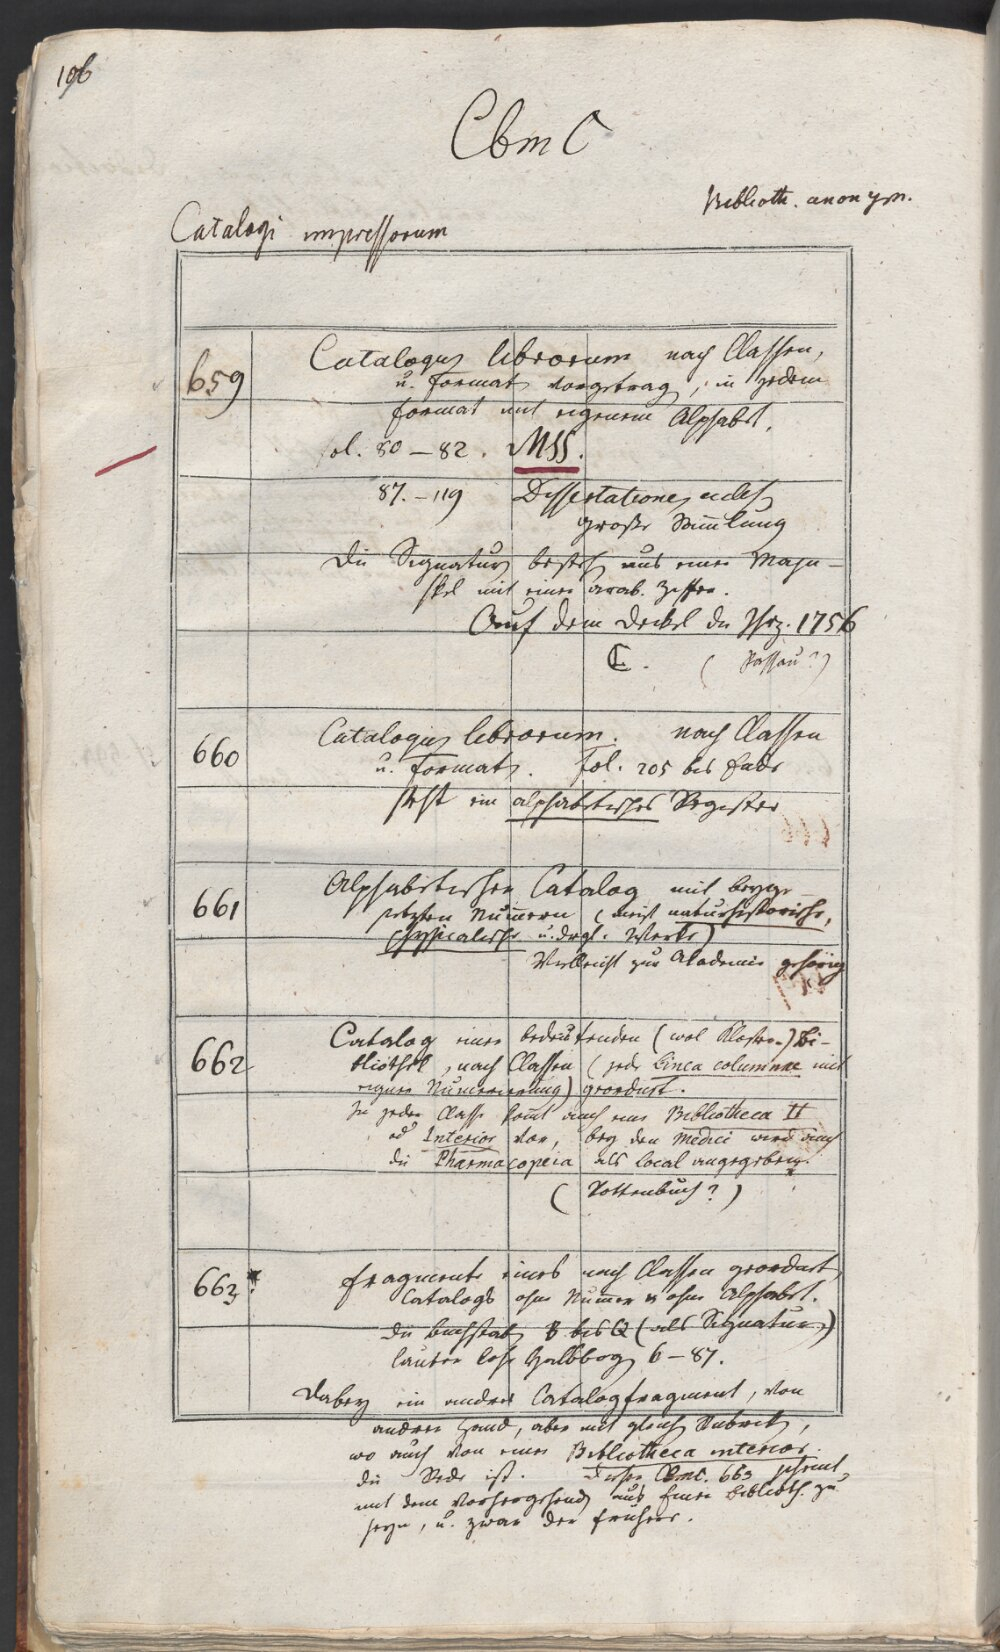 106
Cbm C
Biblioth. anonym.
Catalogi impressorum
659
Catalogus librorum nach Classen,
u. Format vorgetrag, in jedem
Format mit eigenem Alphabet.
fol. 80 – 82. MSS.
87. – 119 Dissertationes
große Sammlung
Die Signatur besteht aus einer Maju-
skel mit einer arab. Ziffer.
Auf dem Deckel die 1756
C. (Passau?)
660
Catalogus librorum. nach Classen
u. Format. Fol. 205 bis Ende
steht ein alphabetisches Register
661
Alphabetischer Catalog mit beyge-
setzten Numern (meist naturhistorische,
physicalische u. drgl. Werke)
Vielleicht zur Akademie gehörig
662
Catalog einer bedeutenden (wol Kloster-) Bi-
bliothek, nach Classen (jede Linea columnae mit
eigner Numerierung) geordnet.
In jeder Classe komt auch eine Bibliotheca II
od Interior vor, bey den Medici wird auch
die Pharmacopeia als local angegeben.
(Rottenbuch?)
663
Fragmente eines nach Classen geordnet
Catalogs ohne Numer u ohne Alphabet.
Die Buchstab B bis Q (als Signatur)
lauter lose Halbbog 6 – 87.
Dabey ein andres Catalogfragment, von
andrer Hand, aber mit gleich Rubrik,
wo auch von einer Bibliotheca interior
die Rede ist. Dieser Cbmc. 663 scheint
mit dem vorhergehend aus Einer Biblioth. zu
seyn, u. zwar der frühere.